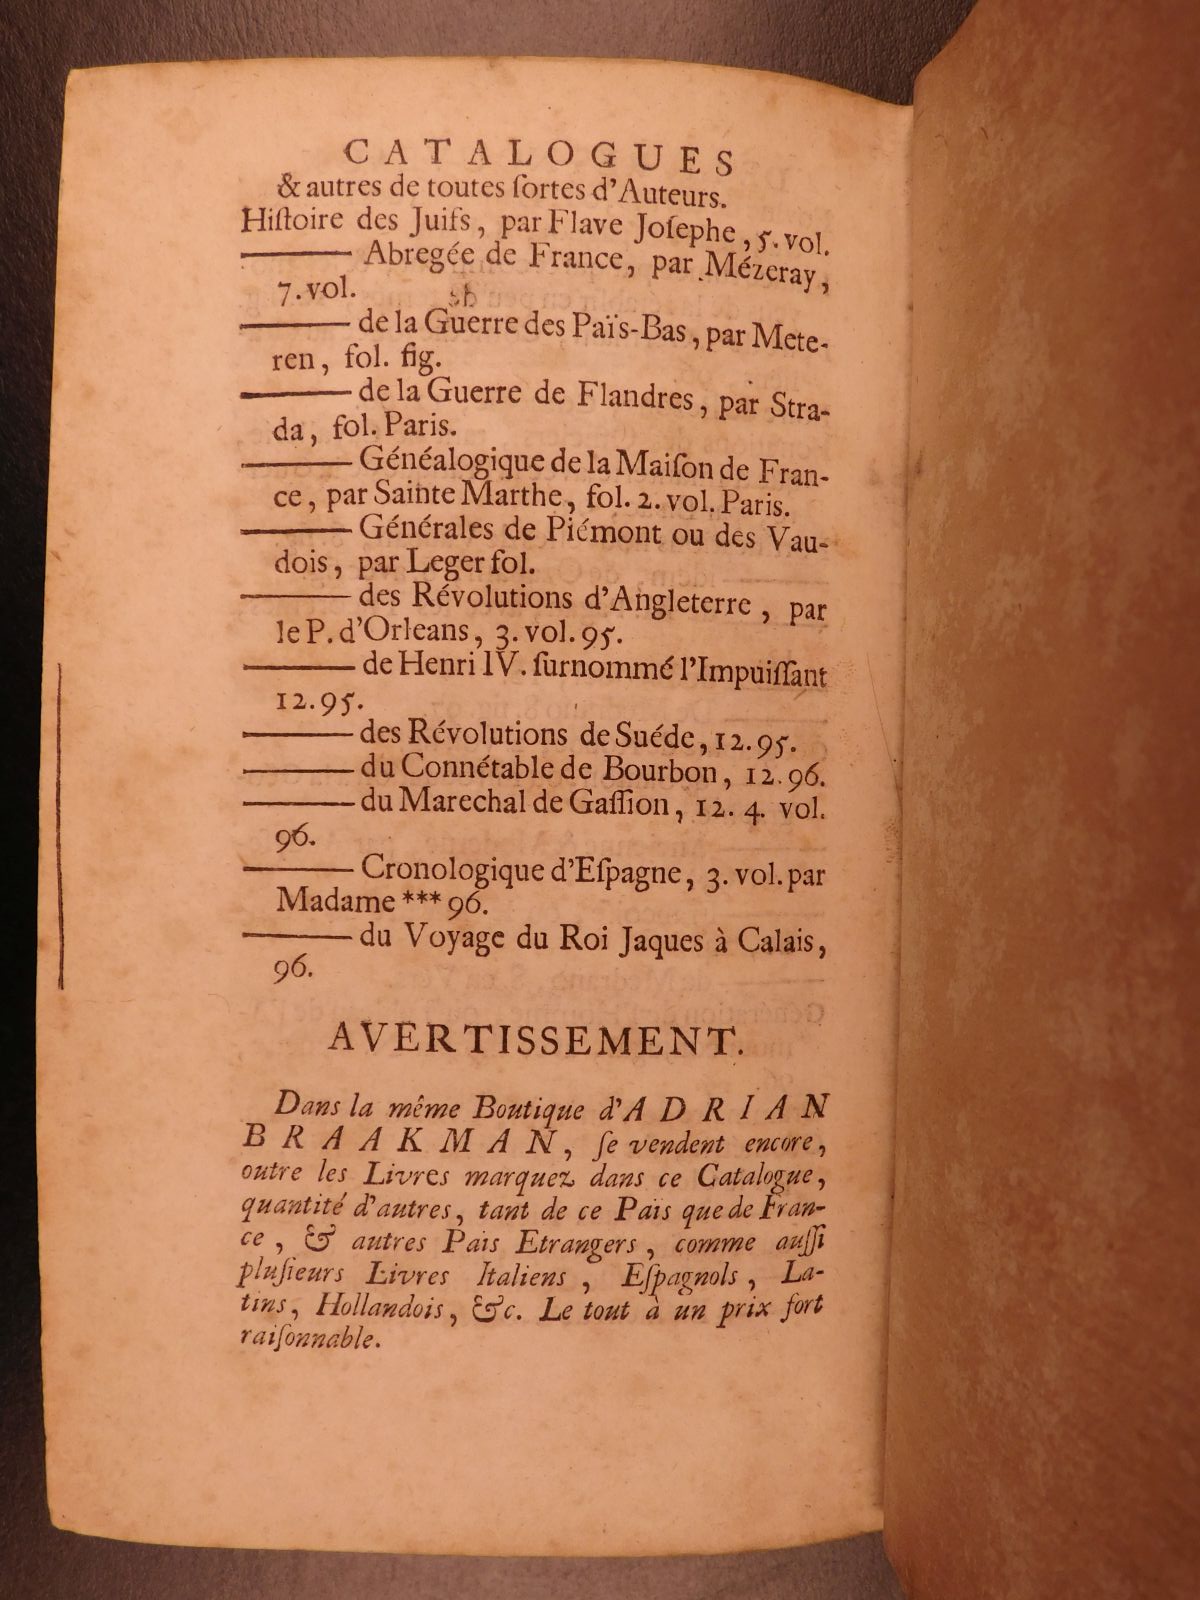 CATALOGUES
& autres de toutes ſortes d'Auteurs.
Hiſtoire des Juifs, par Flave Joſephe, 5. vol.
——— Abregée de France, par Mézeray,
7. vol.
——— de la Guerre des Païs-Bas, par Mete-
ren, fol. fig.
——— de la Guerre de Flandres, par Stra-
da, fol. Paris.
——— Généalogique de la Maiſon de Fran-
ce, par Sainte Marthe, fol. 2. vol. Paris.
——— Générales de Piémont ou des Vau-
dois, par Leger fol.
——— des Révolutions d'Angleterre, par
le P. d'Orleans, 3. vol. 95.
——— de Henri IV. ſurnommé l'Impuiſſant
12. 95.
——— des Révolutions de Suéde, 12. 95.
——— du Connétable de Bourbon, 12. 96.
——— du Marechal de Gaſſion, 12. 4. vol.
96.
——— Cronologique d'Eſpagne, 3. vol. par
Madame *** 96.
——— du Voyage du Roi Jaques à Calais,
96.
AVERTISSEMENT.
Dans la même Boutique d'ADRIAN
BRAAKMAN, ſe vendent encore,
outre les Livres marquez dans ce Catalogue,
quantité d'autres, tant de ce Païs que de Fran-
ce, & autres Païs Etrangers, comme auſſi
pluſieurs Livres Italiens, Eſpagnols, La-
tins, Hollandois, &c. Le tout à un prix fort
raiſonnable.